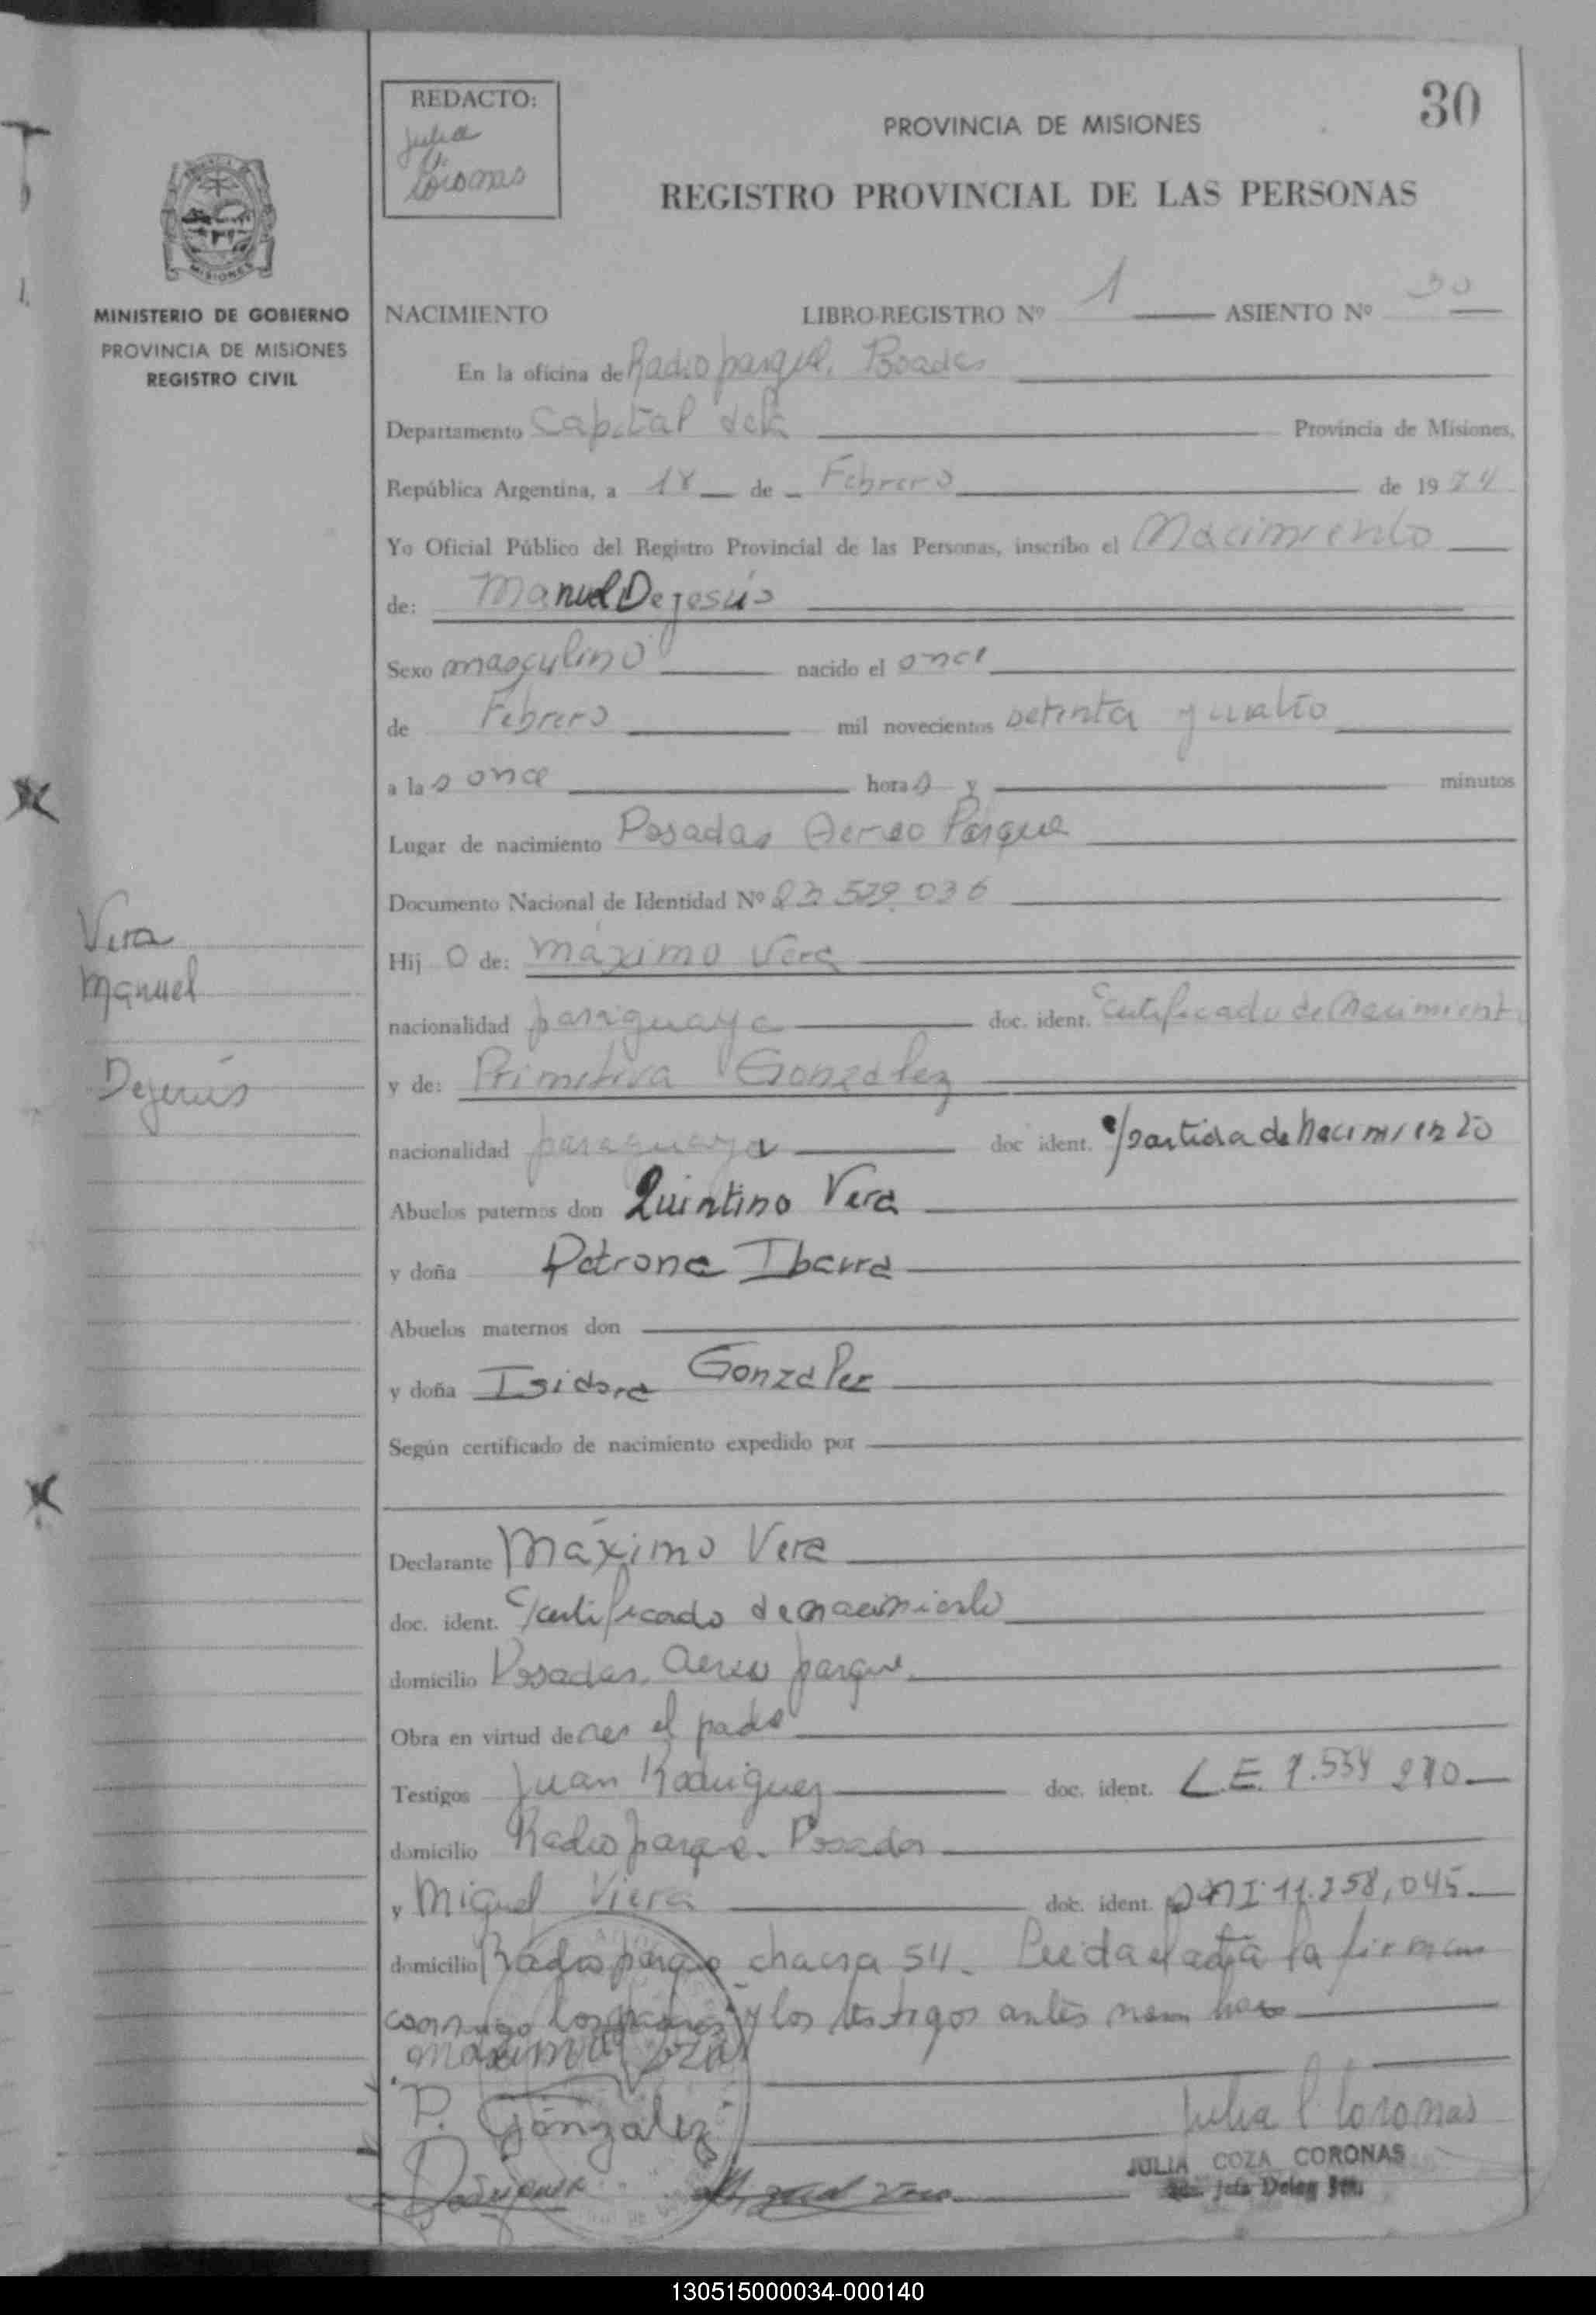 30
REDACTO:
Julia
C.
Coronas
PROVINCIA DE MISIONES
REGISTRO PROVINCIAL DE LAS PERSONAS
MISIONES
MINISTERIO DE GOBIERNO
PROVINCIA DE MISIONES
REGISTRO CIVIL
NACIMIENTO LIBRO-REGISTRO Nº 1 ASIENTO Nº 30
En la oficina de Radio parque, Posadas
Departamento Capital dela Provincia de Misiones,
República Argentina, a 18 de Febrero de 19 74
Yo Oficial Público del Registro Provincial de las Personas, inscribo el Nacimiento
de: Manuel Dejesús
Sexo masculino nacido el once
de Febrero mil novecientos setenta y cuatro
a la s once hora s y minutos
Lugar de nacimiento Posadas Aereo Parque
Documento Nacional de Identidad Nº 23 529.036
Vera
Manuel
Dejesús
Hij o de: Máximo Vera
nacionalidad paraguaya doc. ident. C/certificado de Nacimiento
y de: Primitiva González
nacionalidad paraguaya doc ident. c/partida de Nacimiento
Abuelos paternos don Quintino Vera
y doña Petrona Ibarra
Abuelos maternos don
y doña Isidora González
Según certificado de nacimiento expedido por
Declarante Máximo Vera
doc. ident. C/certificado de nacimiento
domicilio Posadas, Aereo parque
Obra en virtud de ser el padre
Testigos Juan Rodriguez doc. ident. L.E. 7.554 210
domicilio Radio parque. Posadas
y Miguel Viera doc. ident. DNI 11.258,045
domicilio Radio parque chacra 54. Leida el acta la firman
conmigo los padres y los testigos antes nom
Maximo Vera
P. González
Julia C Coronas
JULIA COZA CORONAS
Jefa Deleg
Rodriguez Miguel Viera
130515000034-000140